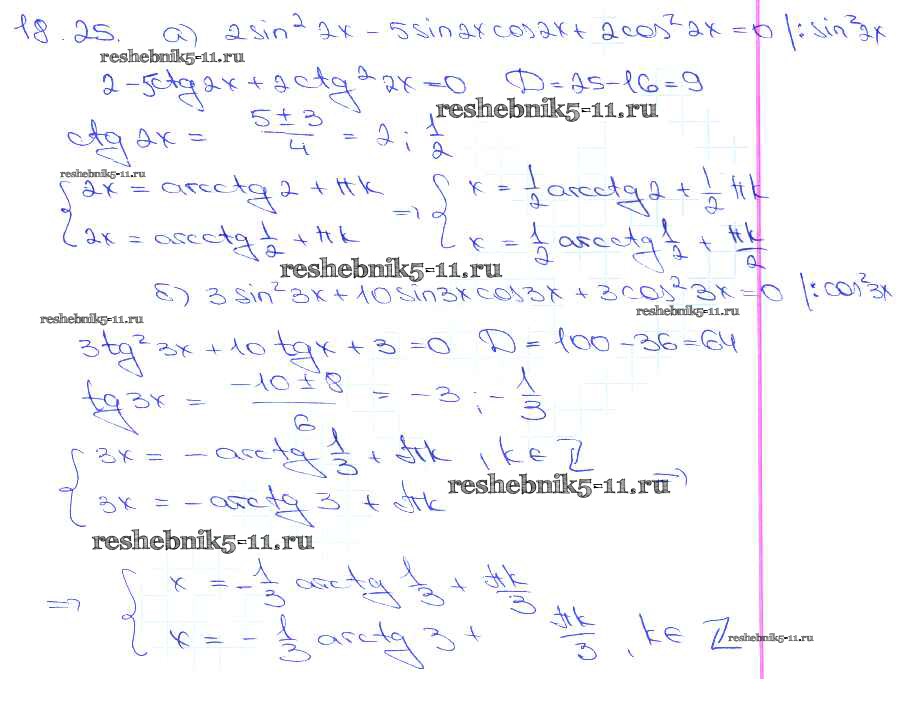 18.25. а) 2sin² 2x - 5sin2x cos2x + 2cos² 2x = 0 |: sin² 2x
reshebnik5-11.ru
2 - 5ctg2x + 2ctg² 2x = 0 D = 25 - 16 = 9
reshebnik5-11.ru
ctg 2x = (5 ± 3)/4 = 2; 1/2
reshebnik5-11.ru
{ 2x = arcctg 2 + πk => { x = 1/2 arcctg 2 + 1/2 πk
2x = arcctg 1/2 + πk x = 1/2 arcctg 1/2 + πk/2
reshebnik5-11.ru
б) 3sin² 3x + 10sin3x cos3x + 3cos² 3x = 0 |: cos² 3x
reshebnik5-11.ru reshebnik5-11.ru
3tg² 3x + 10 tgx + 3 = 0 D = 100 - 36 = 64
tg 3x = (-10 ± 8)/6 = -3; -1/3
{ 3x = - arctg 1/3 + πk, k ∈ Z
3x = - arctg 3 + πk =>
reshebnik5-11.ru
reshebnik5-11.ru
=> { x = - 1/3 arctg 1/3 + πk/3
x = - 1/3 arctg 3 + πk/3, k ∈ Z
reshebnik5-11.ru